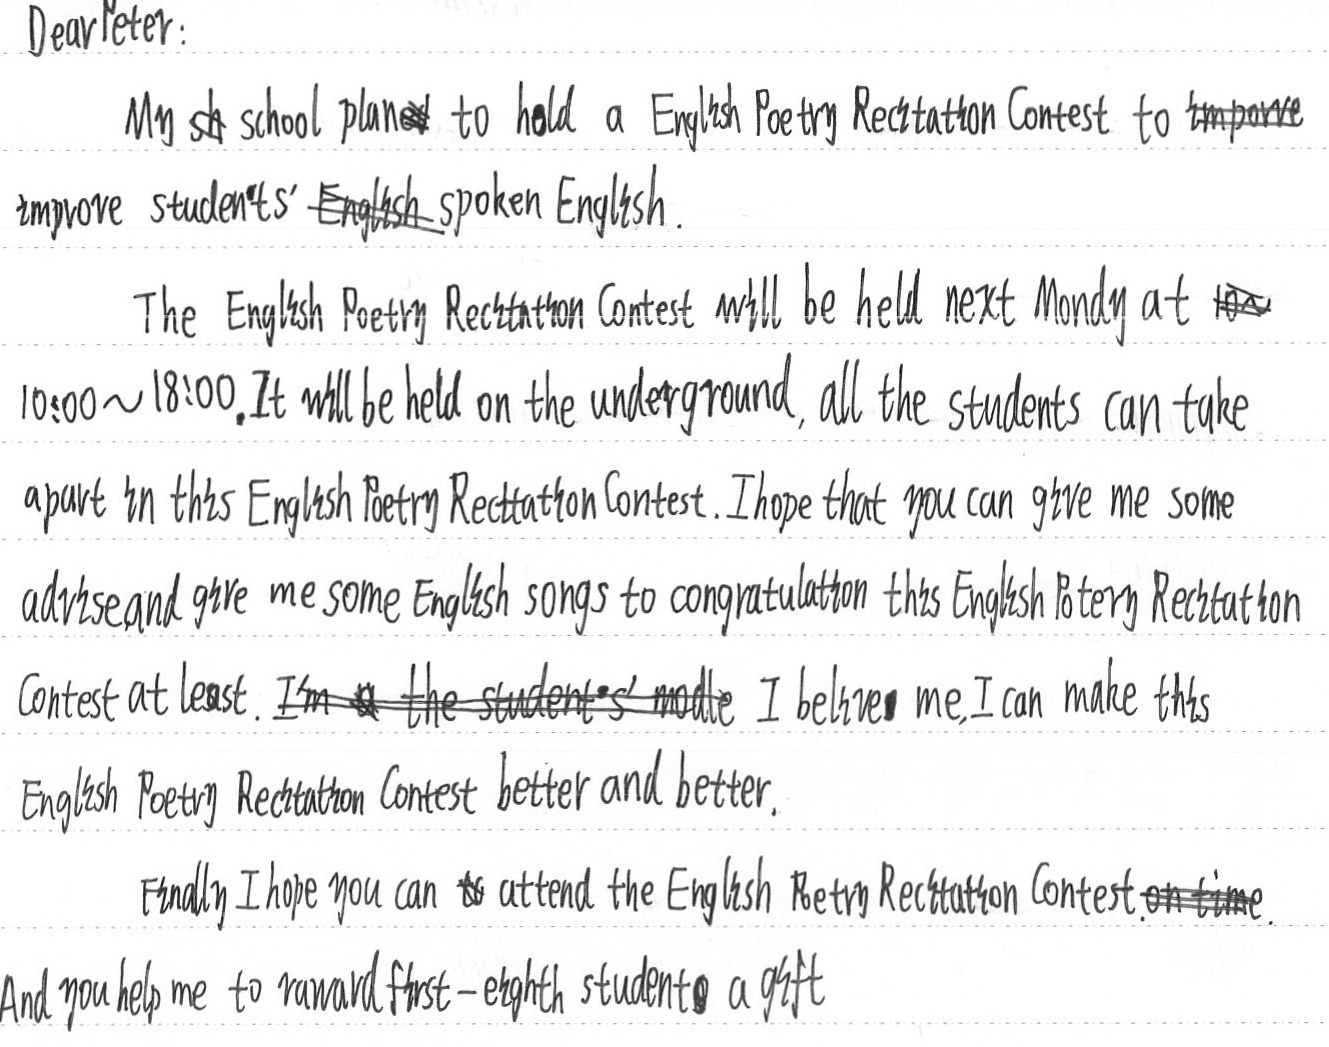 Dear Peter:
My school plan to hold a English Poetry Recitation Contest to
improve students' spoken English.
The English Poetry Recitation Contest will be held next Mondy at
10:00~18:00. It will be held on the underground, all the students can take
apart in this English Poetry Recitation Contest. I hope that you can give me some
advise and give me some English songs to congratulation this English Potery Recitation
Contest at least. I belive me, I can make this
English Poetry Recitation Contest better and better.
Finally I hope you can attend the English Poetry Recitation Contest.
And you help me to raward first-eighth students a gift